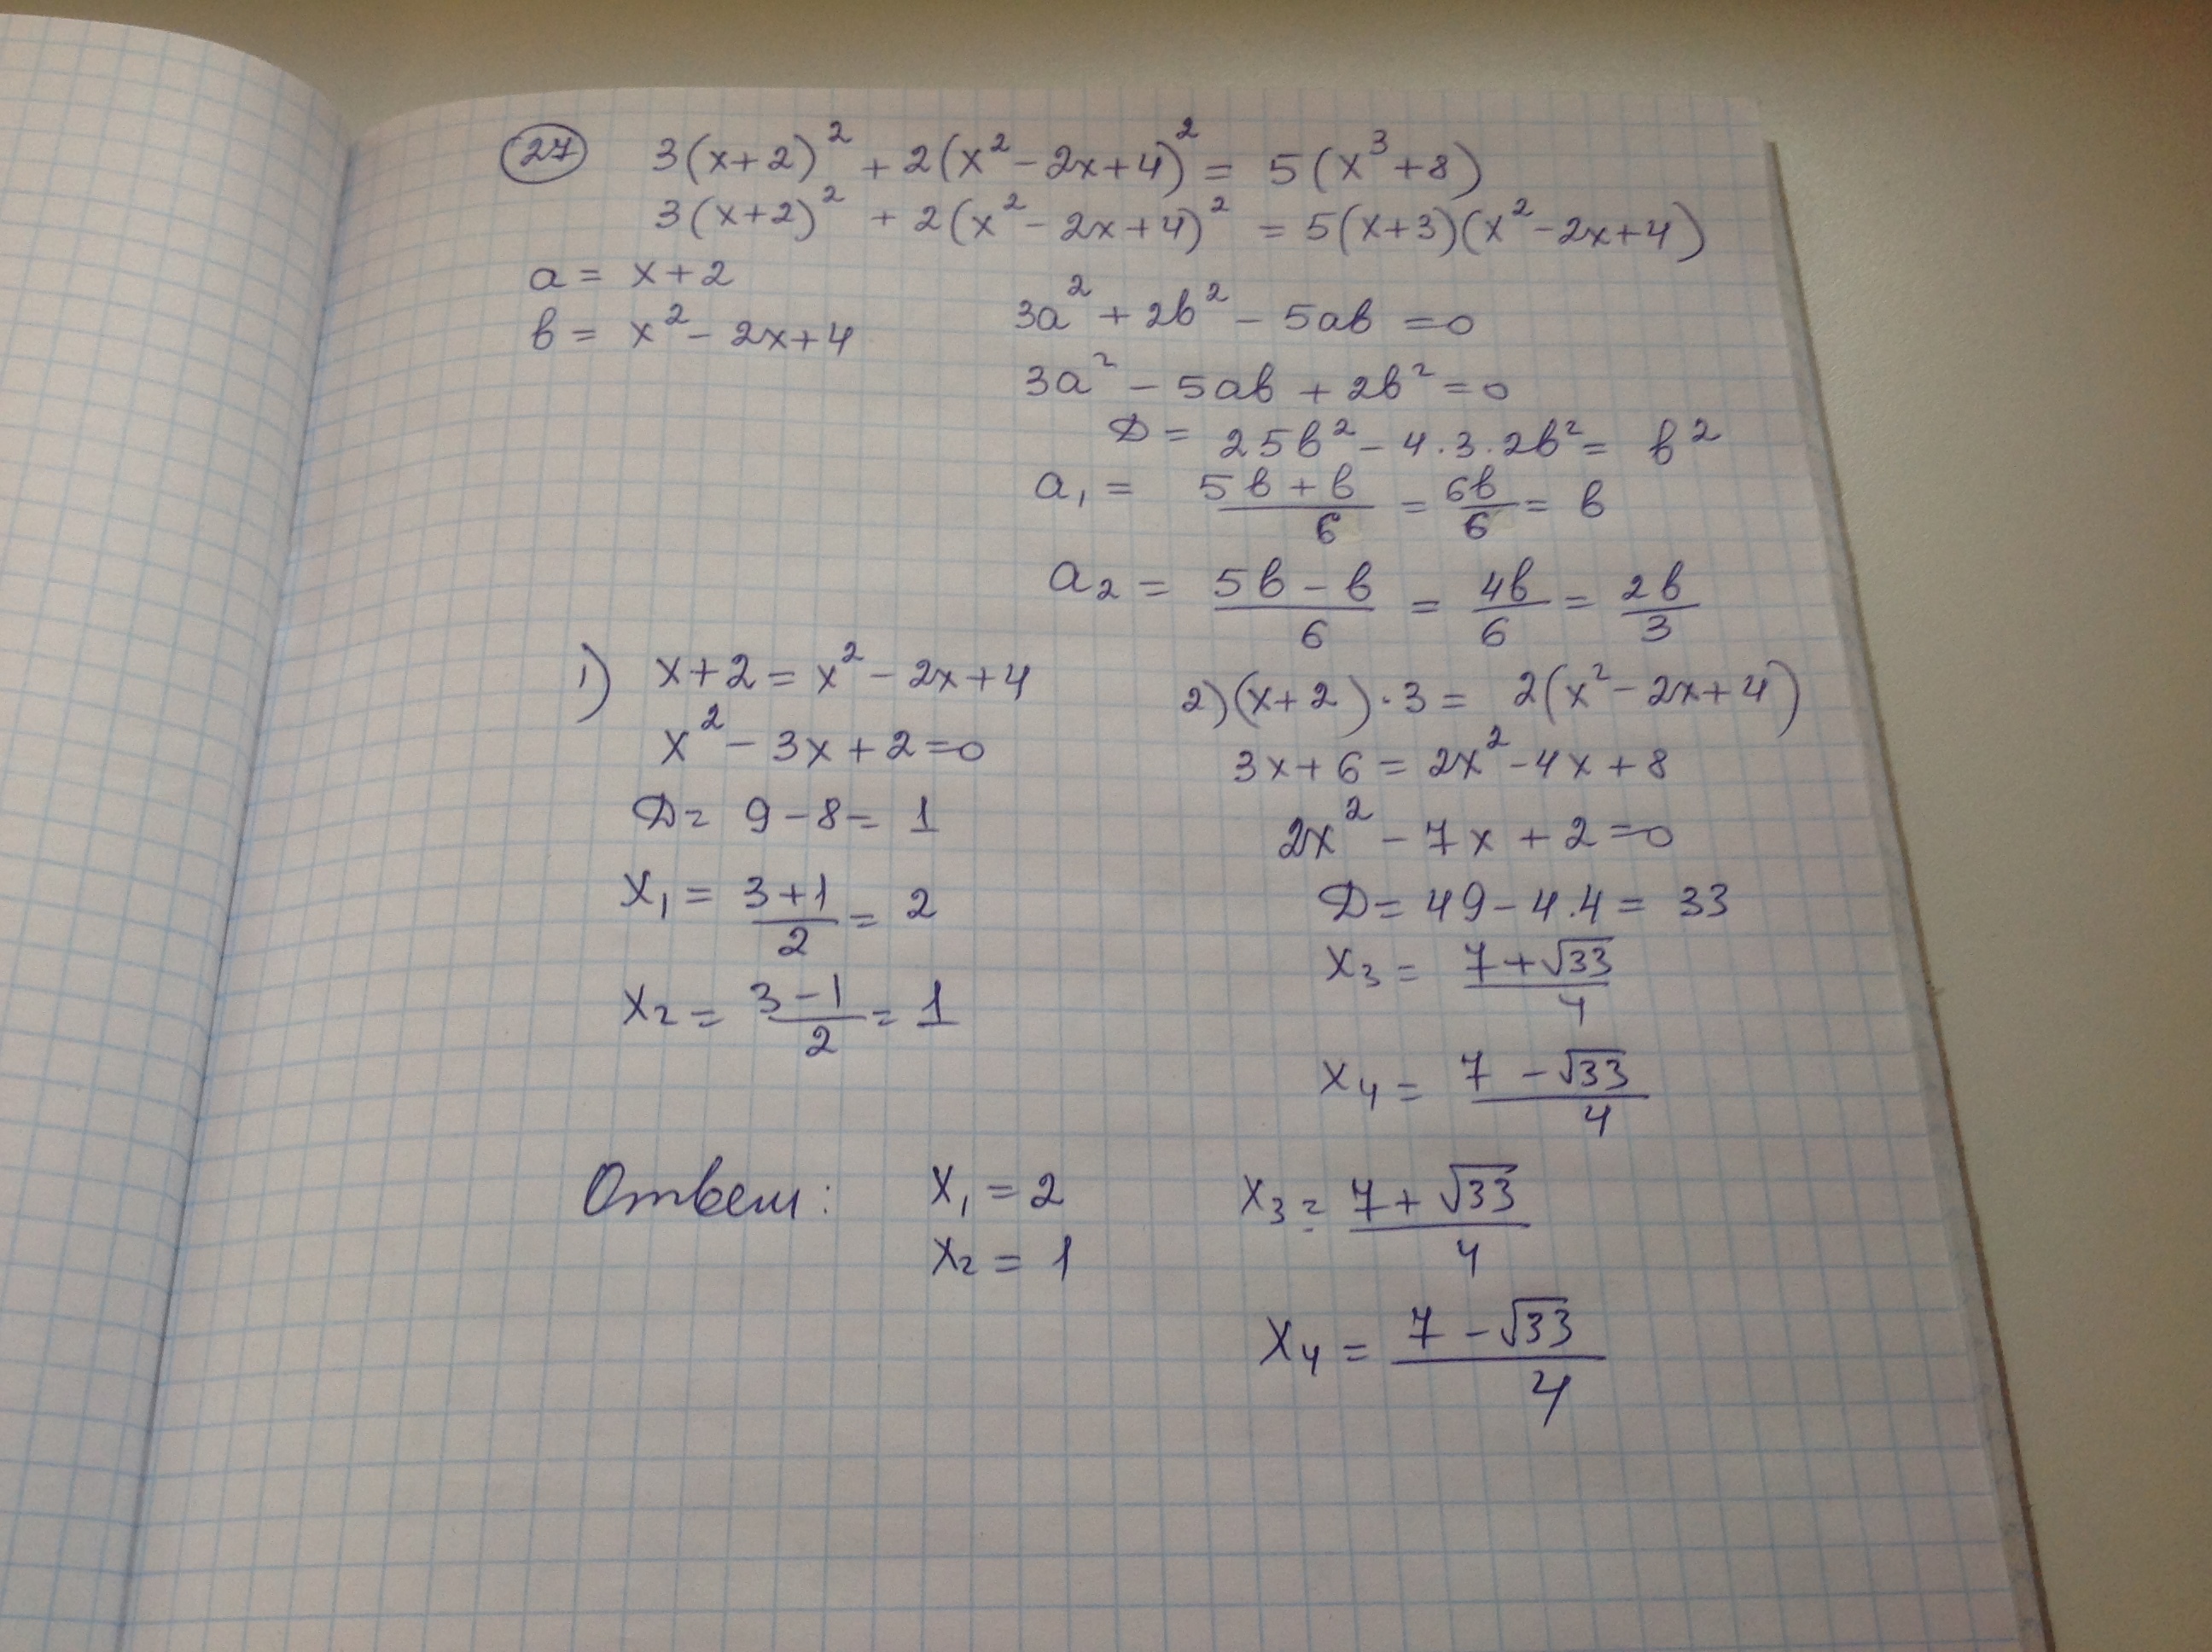 27 3(x+2)² + 2(x²-2x+4)² = 5(x³+8)
3(x+2)² + 2(x²-2x+4)² = 5(x+3)(x²-2x+4)
a = x+2
b = x²-2x+4
3a² + 2b² - 5ab = 0
3a² - 5ab + 2b² = 0
D = 25b² - 4·3·2b² = b²
a₁ = (5b+b)/6 = 6b/6 = b
a₂ = (5b-b)/6 = 4b/6 = 2b/3
1) x+2 = x²-2x+4
x²-3x+2=0
D = 9-8 = 1
x₁ = (3+1)/2 = 2
x₂ = (3-1)/2 = 1
2) (x+2)·3 = 2(x²-2x+4)
3x+6 = 2x²-4x+8
2x²-7x+2=0
D = 49-4·4 = 33
x₃ = (7+√33)/4
x₄ = (7-√33)/4
Ответ: x₁ = 2 x₃ = (7+√33)/4
x₂ = 1
x₄ = (7-√33)/4